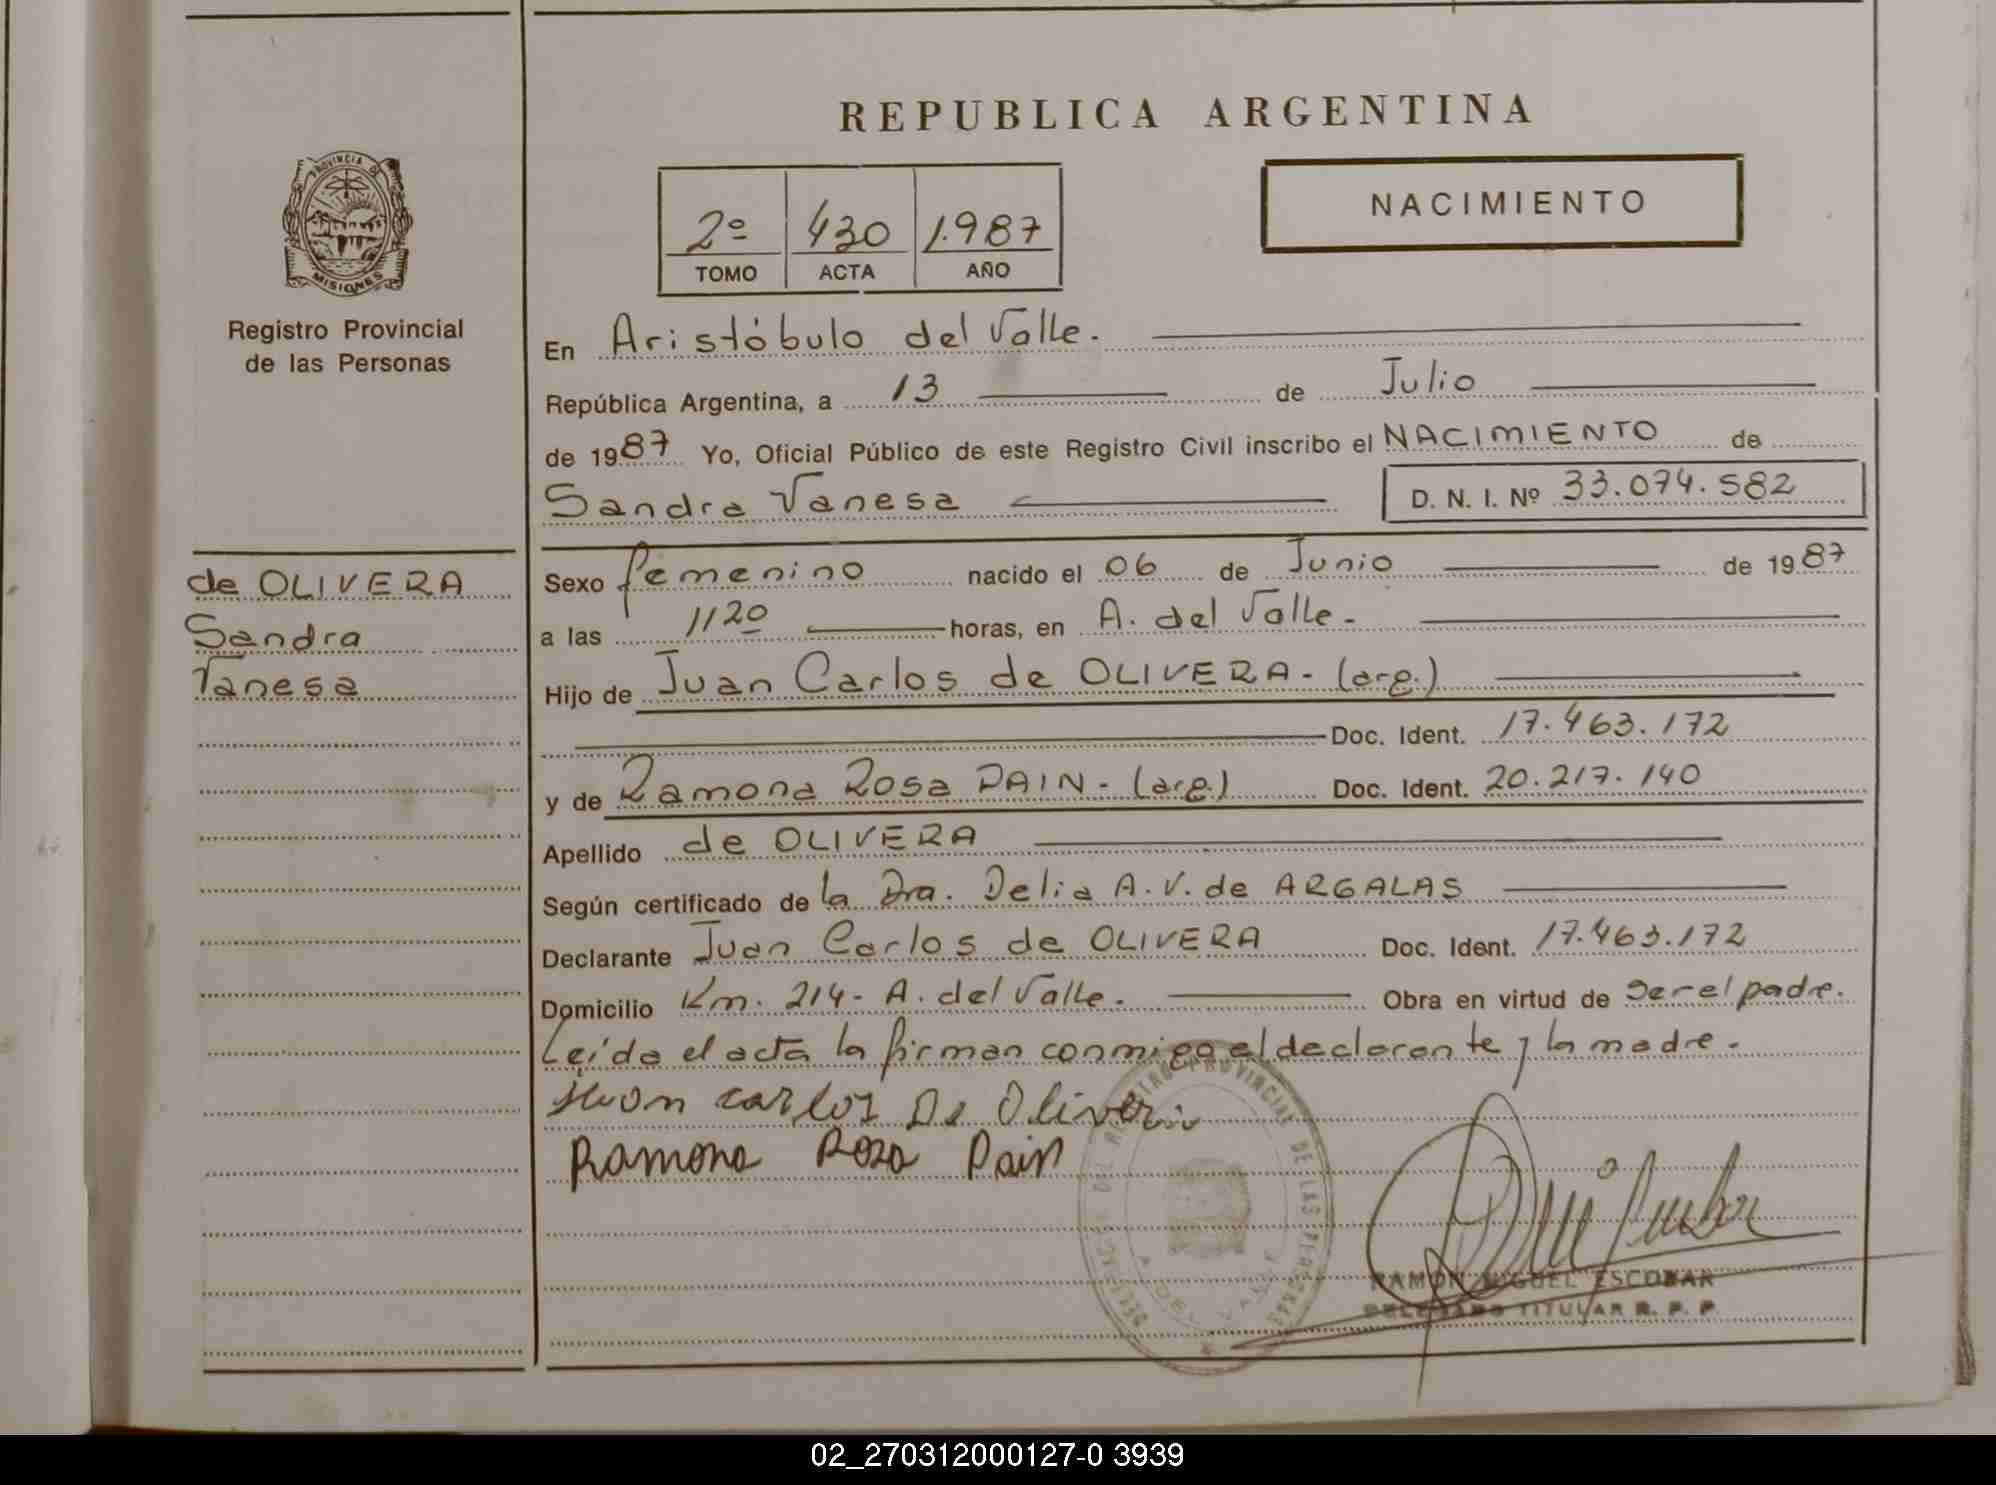 REPUBLICA ARGENTINA
PROVINCIA DE
MISIONES
Registro Provincial
de las Personas
2º 430 1.987
TOMO ACTA AÑO
NACIMIENTO
En Aristóbulo del Valle.
República Argentina, a 13 de Julio
de 1987 Yo, Oficial Público de este Registro Civil inscribo el NACIMIENTO de
Sandra Vanesa D. N. I. Nº 33.074.582
de OLIVERA
Sandra
Vanesa
Sexo femenino nacido el 06 de Junio de 1987
a las 1120 horas, en A. del Valle.-
Hijo de Juan Carlos de OLIVERA.- (arg.)
Doc. Ident. 17.463.172
y de Ramona Rosa PAIN.- (arg.) Doc. Ident. 20.217.140
Apellido de OLIVERA
Según certificado de la Dra. Delia A.V. de ARGALAS
Declarante Juan Carlos de OLIVERA Doc. Ident. 17.463.172
Domicilio Km. 214- A. del Valle. Obra en virtud de ser el padre.
Leída el acta la firman conmigo el declarante y la madre.
Juan carlos De Olivera
Ramona Rosa Pain
REGISTRO PROVINCIAL DE LAS PERSONAS
RAMON MIGUEL ESCOBAR
DELEGADO TITULAR R. P. P.
02_270312000127-0 3939